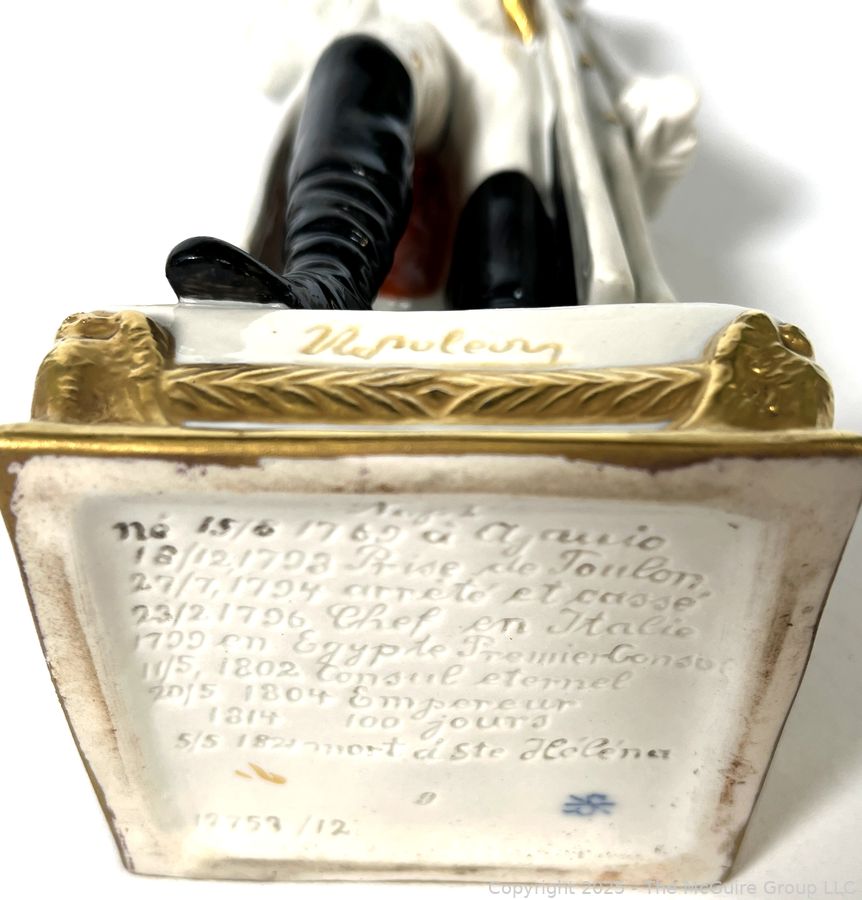 Napoleon
né 15/8 1769 à Ajaccio
18/12, 1793 Prise de Toulon,
27/7, 1794 arrêté et cassé
23/2 1796 Chef en Italie
1799 en Egypte Premier Consul
11/5, 1802 Consul eternel
20/5 1804 Empereur
1814 100 jours
5/5 1821 mort à Ste Hélèna
12753 /12
Copyright 2023 - The McGuire Group LLC